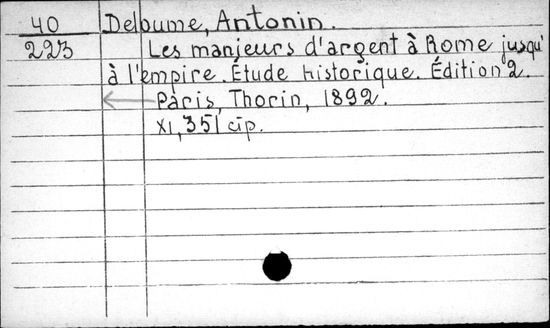 40
223
Deloume, Antonin.
Les manieurs d'argent à Rome jusqu'
à l'empire. Étude historique. Édition 2.
Paris, Thorin, 1892.
XI, 351 стр.